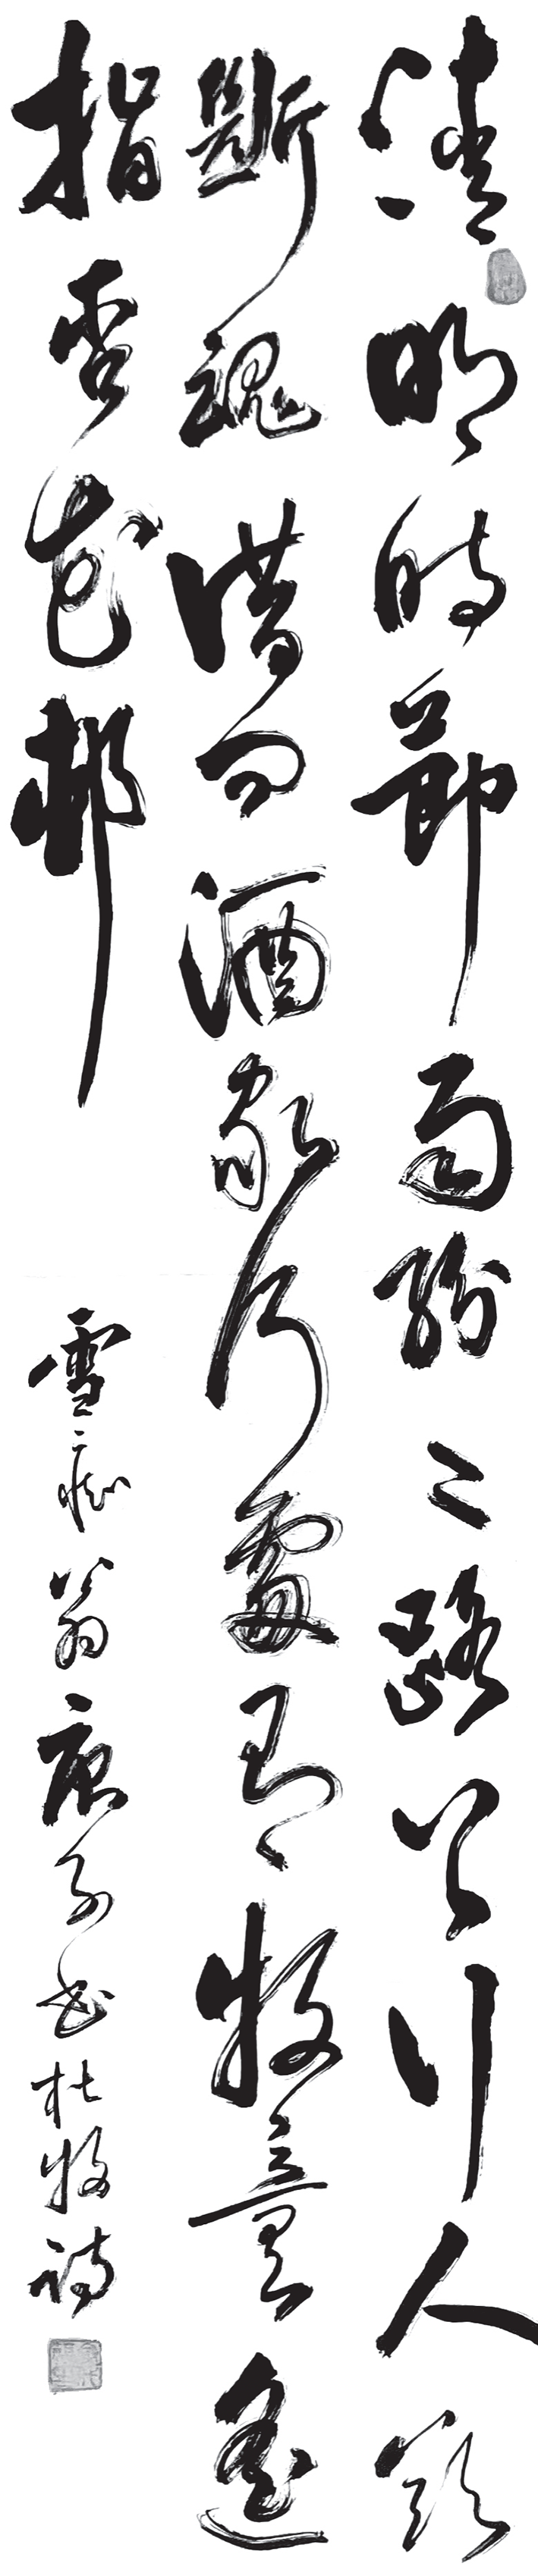 清明時節雨紛々路上行人欲
斷魂借問酒家何處有牧童遙
指杏花邨
雪翁庚子书杜牧詩